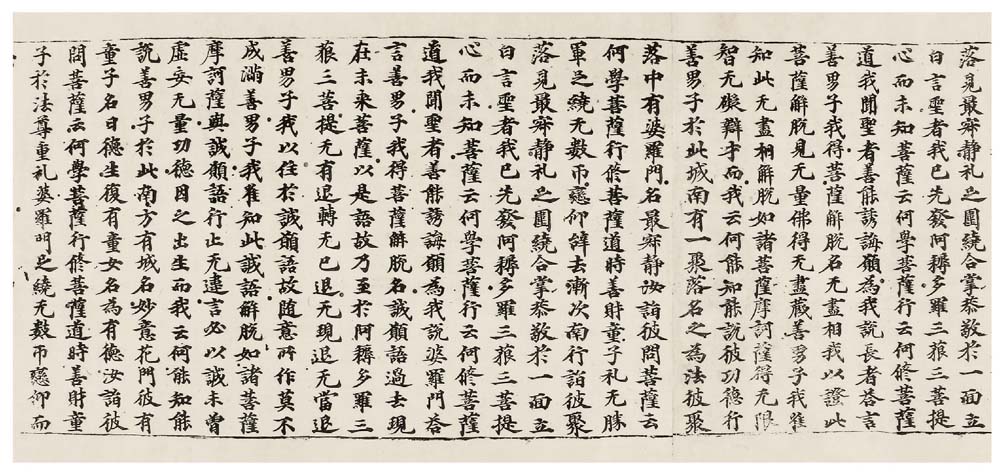 落見最寂静礼足圍繞合掌恭敬於一面立
白言聖者我已先發阿耨多羅三藐三菩提
心而未知菩薩云何學菩薩行云何修菩薩
道我聞聖者善能誘誨願為我說長者答言
善男子我得菩薩解脫名无盡相我以證此
菩薩解脫見无量佛得无盡藏善男子我唯
知此无盡相解脫如諸菩薩摩訶薩得无限
智无礙辯才而我云何能知能說彼功德行
善男子於此城南有一聚落名之為法彼聚
落中有婆羅門名最寂静汝詣彼問菩薩云
何學菩薩行修菩薩道時善財童子礼无勝
軍足繞无數帀戀仰辭去漸次南行詣彼聚
落見最寂静礼足圍繞合掌恭敬於一面立
白言聖者我已先發阿耨多羅三藐三菩提
心而未知菩薩云何學菩薩行云何修菩薩
道我聞聖者善能誘誨願為我說婆羅門答
言善男子我得菩薩解脫名誠願語過去現
在未來菩薩以是語故乃至於阿耨多羅三
藐三菩提无有退轉无已退无現退无當退
善男子我以住於誠願語故隨意所作莫不
成滿善男子我唯知此誠語解脫如諸菩薩
摩訶薩與誠願語行止无違言必以誠未曾
虛妄无量功德因之出生而我云何能知能
說善男子於此南方有城名妙意花門彼有
童子名曰德生復有童女名為有德汝詣彼
問菩薩云何學菩薩行修菩薩道時善財童
子於法尊重礼婆羅門足繞无數帀戀仰而